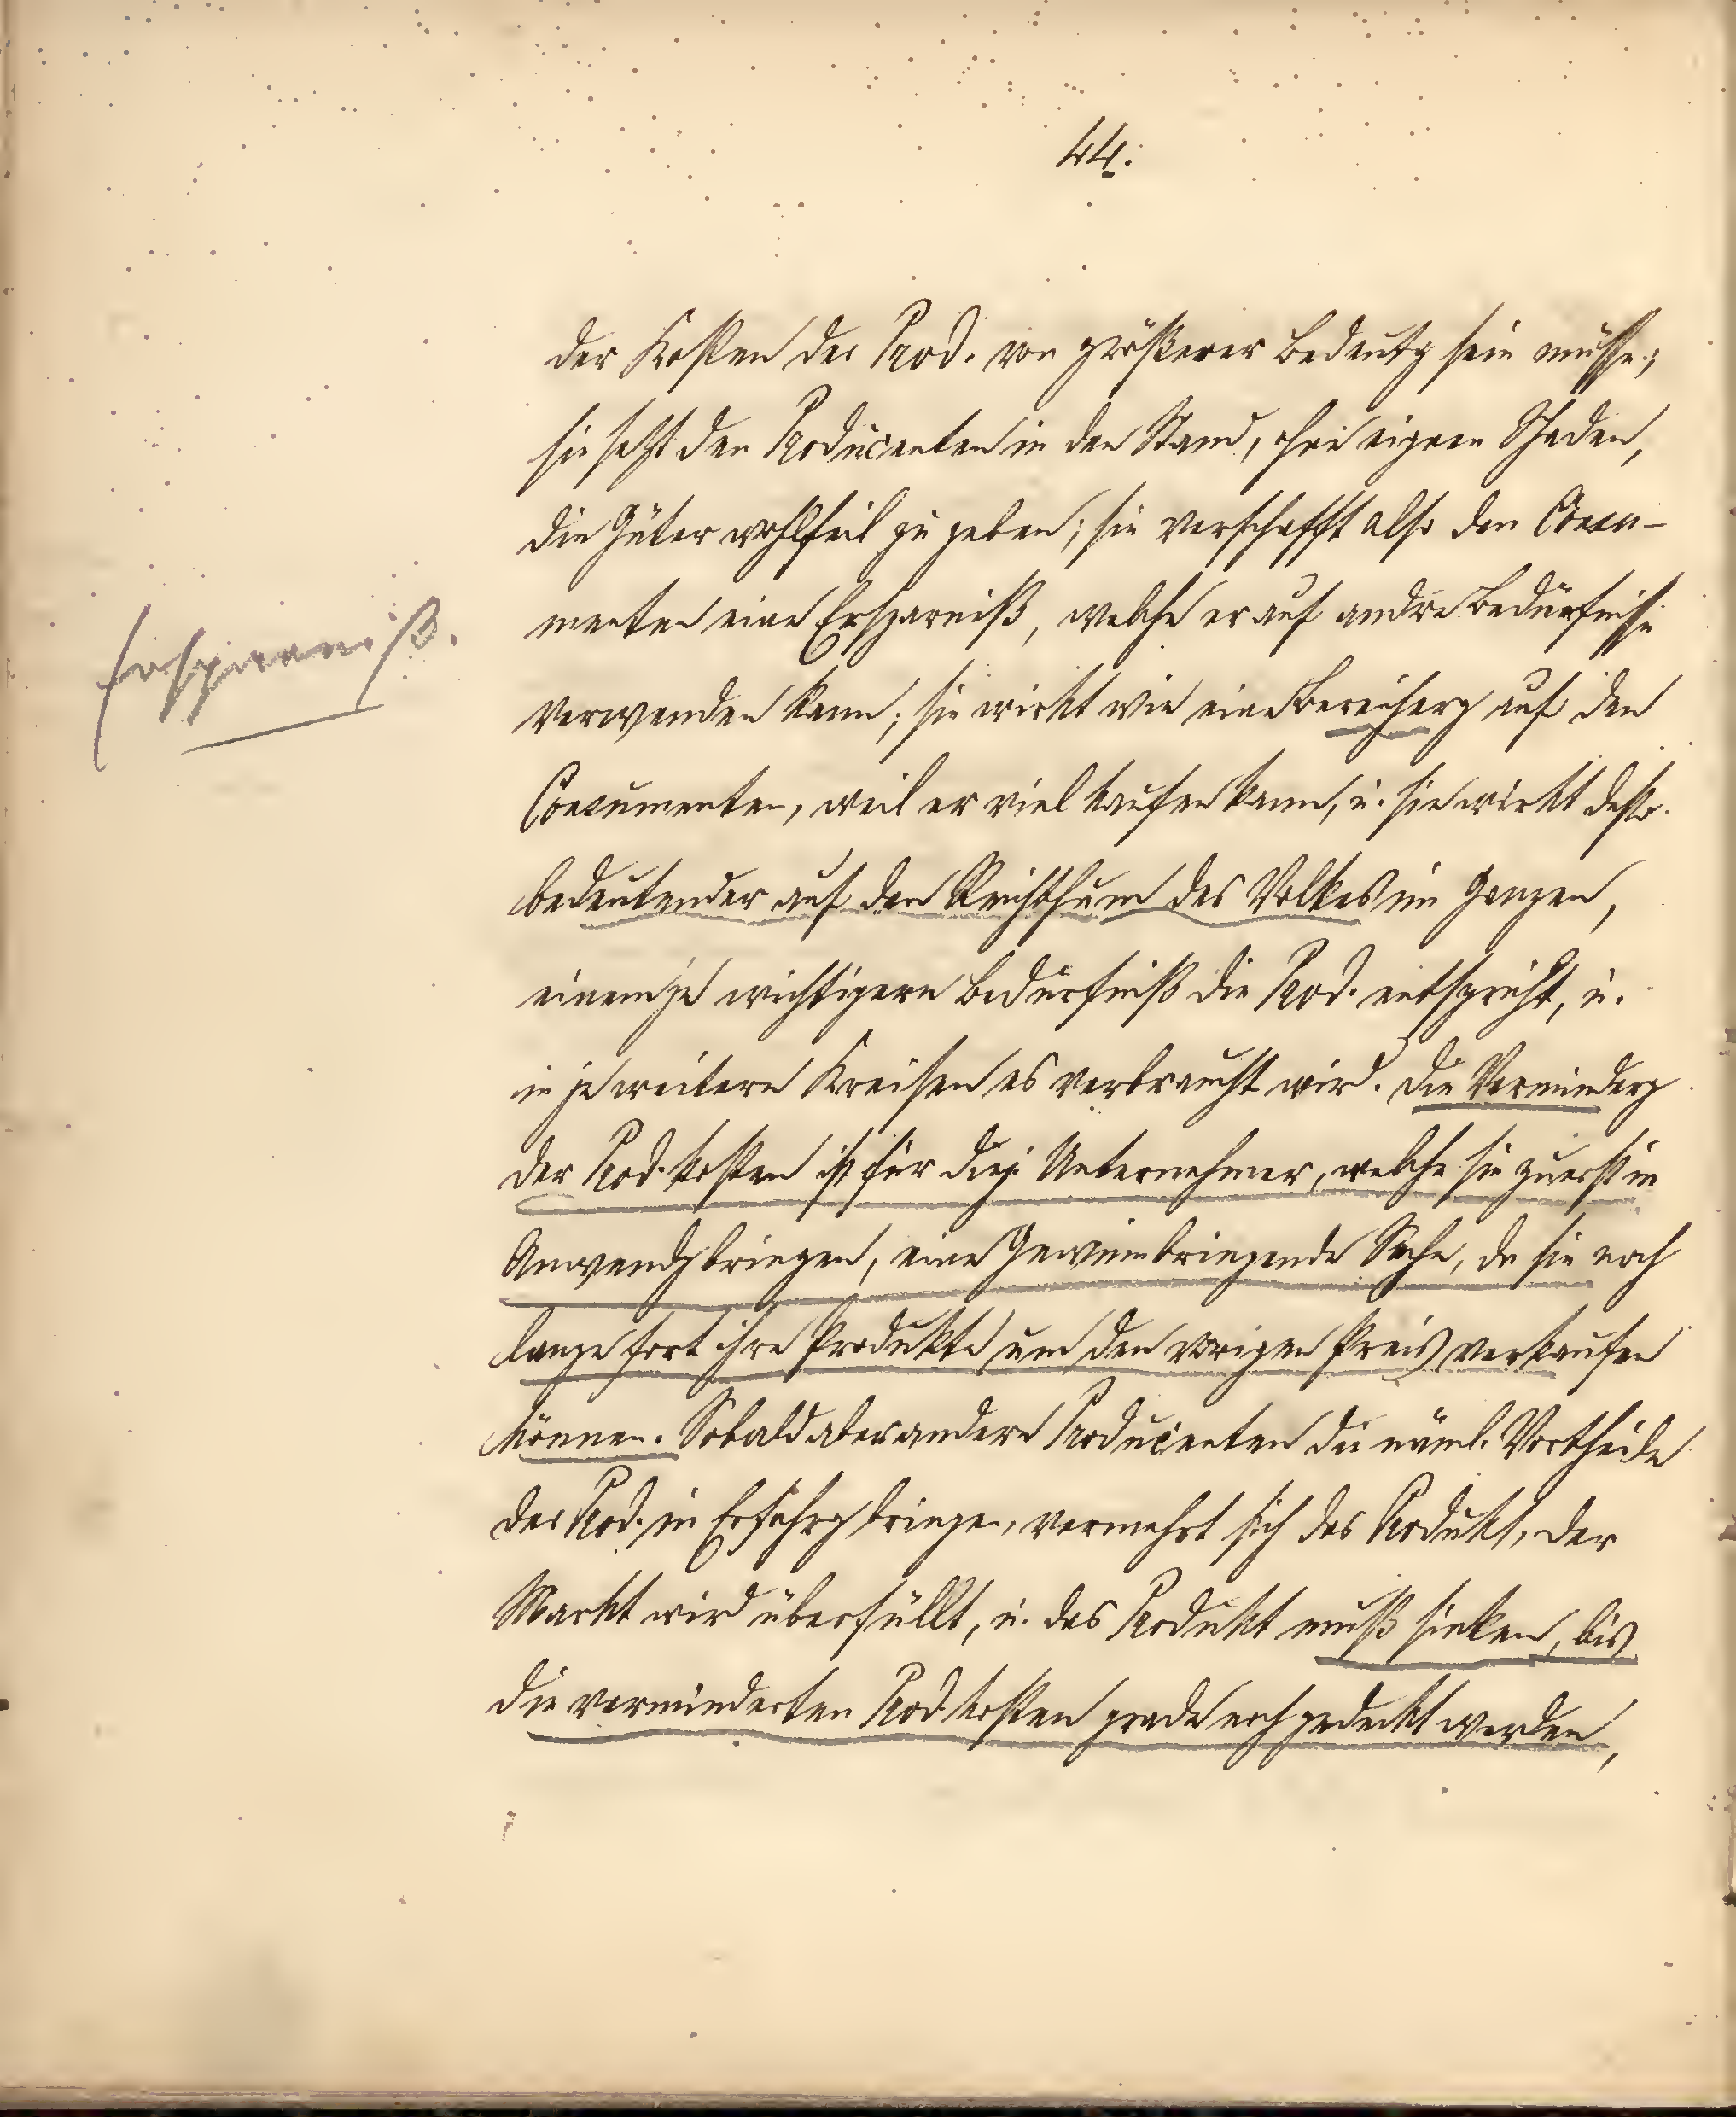 44.
der Kosten der Prod. von größerer Bedeutg sein müsse;
sie setzt den Producenten in den Stand, ohne eignen Schaden,
die Güter wohlfeil zu geben; sie verschafft also den Consu-
menten eine Ersparniß, welche er auf andre Bedürfnisse
Ersparniß.
verwenden kann; sie wirkt wie eine Bereicherg auf den
Consumenten, weil er viel kaufen kann, u. sie wirkt desto
bedeutender auf den Reichthum des Volkes im Ganzen,
einem je wichtigern Bedürfniß die Prod. entspricht, u.
in je weitern Kreisen es verbraucht wird. Die Verminderg
der Prod.kosten ist für diej. Unternehmer, welche sie zuerst in
Anwendg bringen, eine Gewinnbringende Sache, da sie noch
lange fort ihre Produkte um den vorigen Preis verkaufen
können. Sobald aber andere Producenten die näml. Vortheile
der Prod. in Erfahrg bringen, vermehrt sich das Produkt, der
Markt wird überfüllt, u. das Produkt muß sinken, bis
die verminderten Prod.kosten grade noch gedeckt werden,